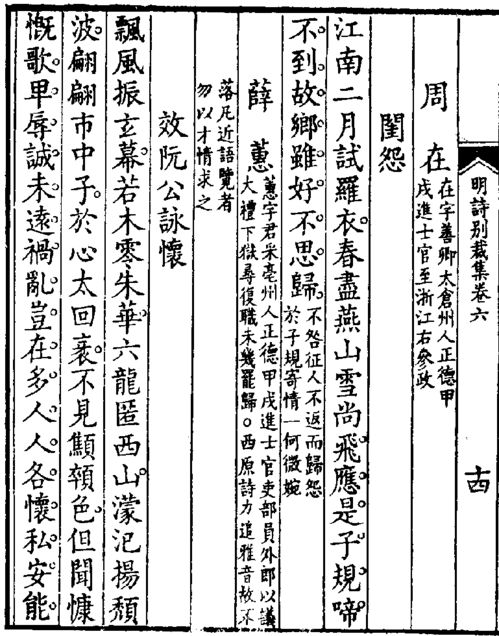 明詩別裁集卷六
十四
周在
在字善卿太倉州人正德甲
戌進士官至浙江右參政
閨怨
江南二月試羅衣春盡燕山雪尚飛應是子規啼
不到故鄉雖好不思歸
不咎征人不返而歸怨
於子規寄情一何微婉
薛蕙
蕙字君采亳州人正德甲戌進士官吏部員外郎以議
大禮下獄尋復職未幾罷歸。西原詩力追雅音故不
落凡近語覽者
勿以才情求之
效阮公詠懷
飄風振玄幕若木零朱華六龍匿西山濛汜揚頹
波翩翩市中子於心太回衺不見顦顇色但聞慷
慨歌卑辱誠未遠禍亂豈在多人人各懷私安能